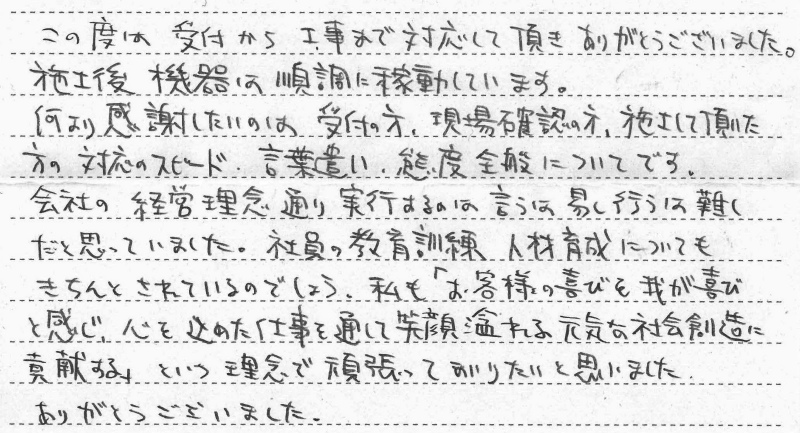 この度は 受付から 工事まで 対応して 頂き ありがとうございました。
施工後 機器は 順調に稼動しています。
何より 感謝したいのは 受付の方、現場確認の方、施工して頂いた
方の 対応のスピード、言葉遣い、態度全般についてです。
会社の 経営理念通り 実行するのは 言うは 易し行うは 難し
だと思っていました。社員の教育訓練 人材育成についても
きちんと されているのでしょう、私も「お客様の喜びを 我が喜び
と感じ、心を 込めた仕事を通して 笑顔溢れる 元気な社会創造に
貢献する」 という 理念で 頑張って まいりたいと思いました
ありがとうございました。